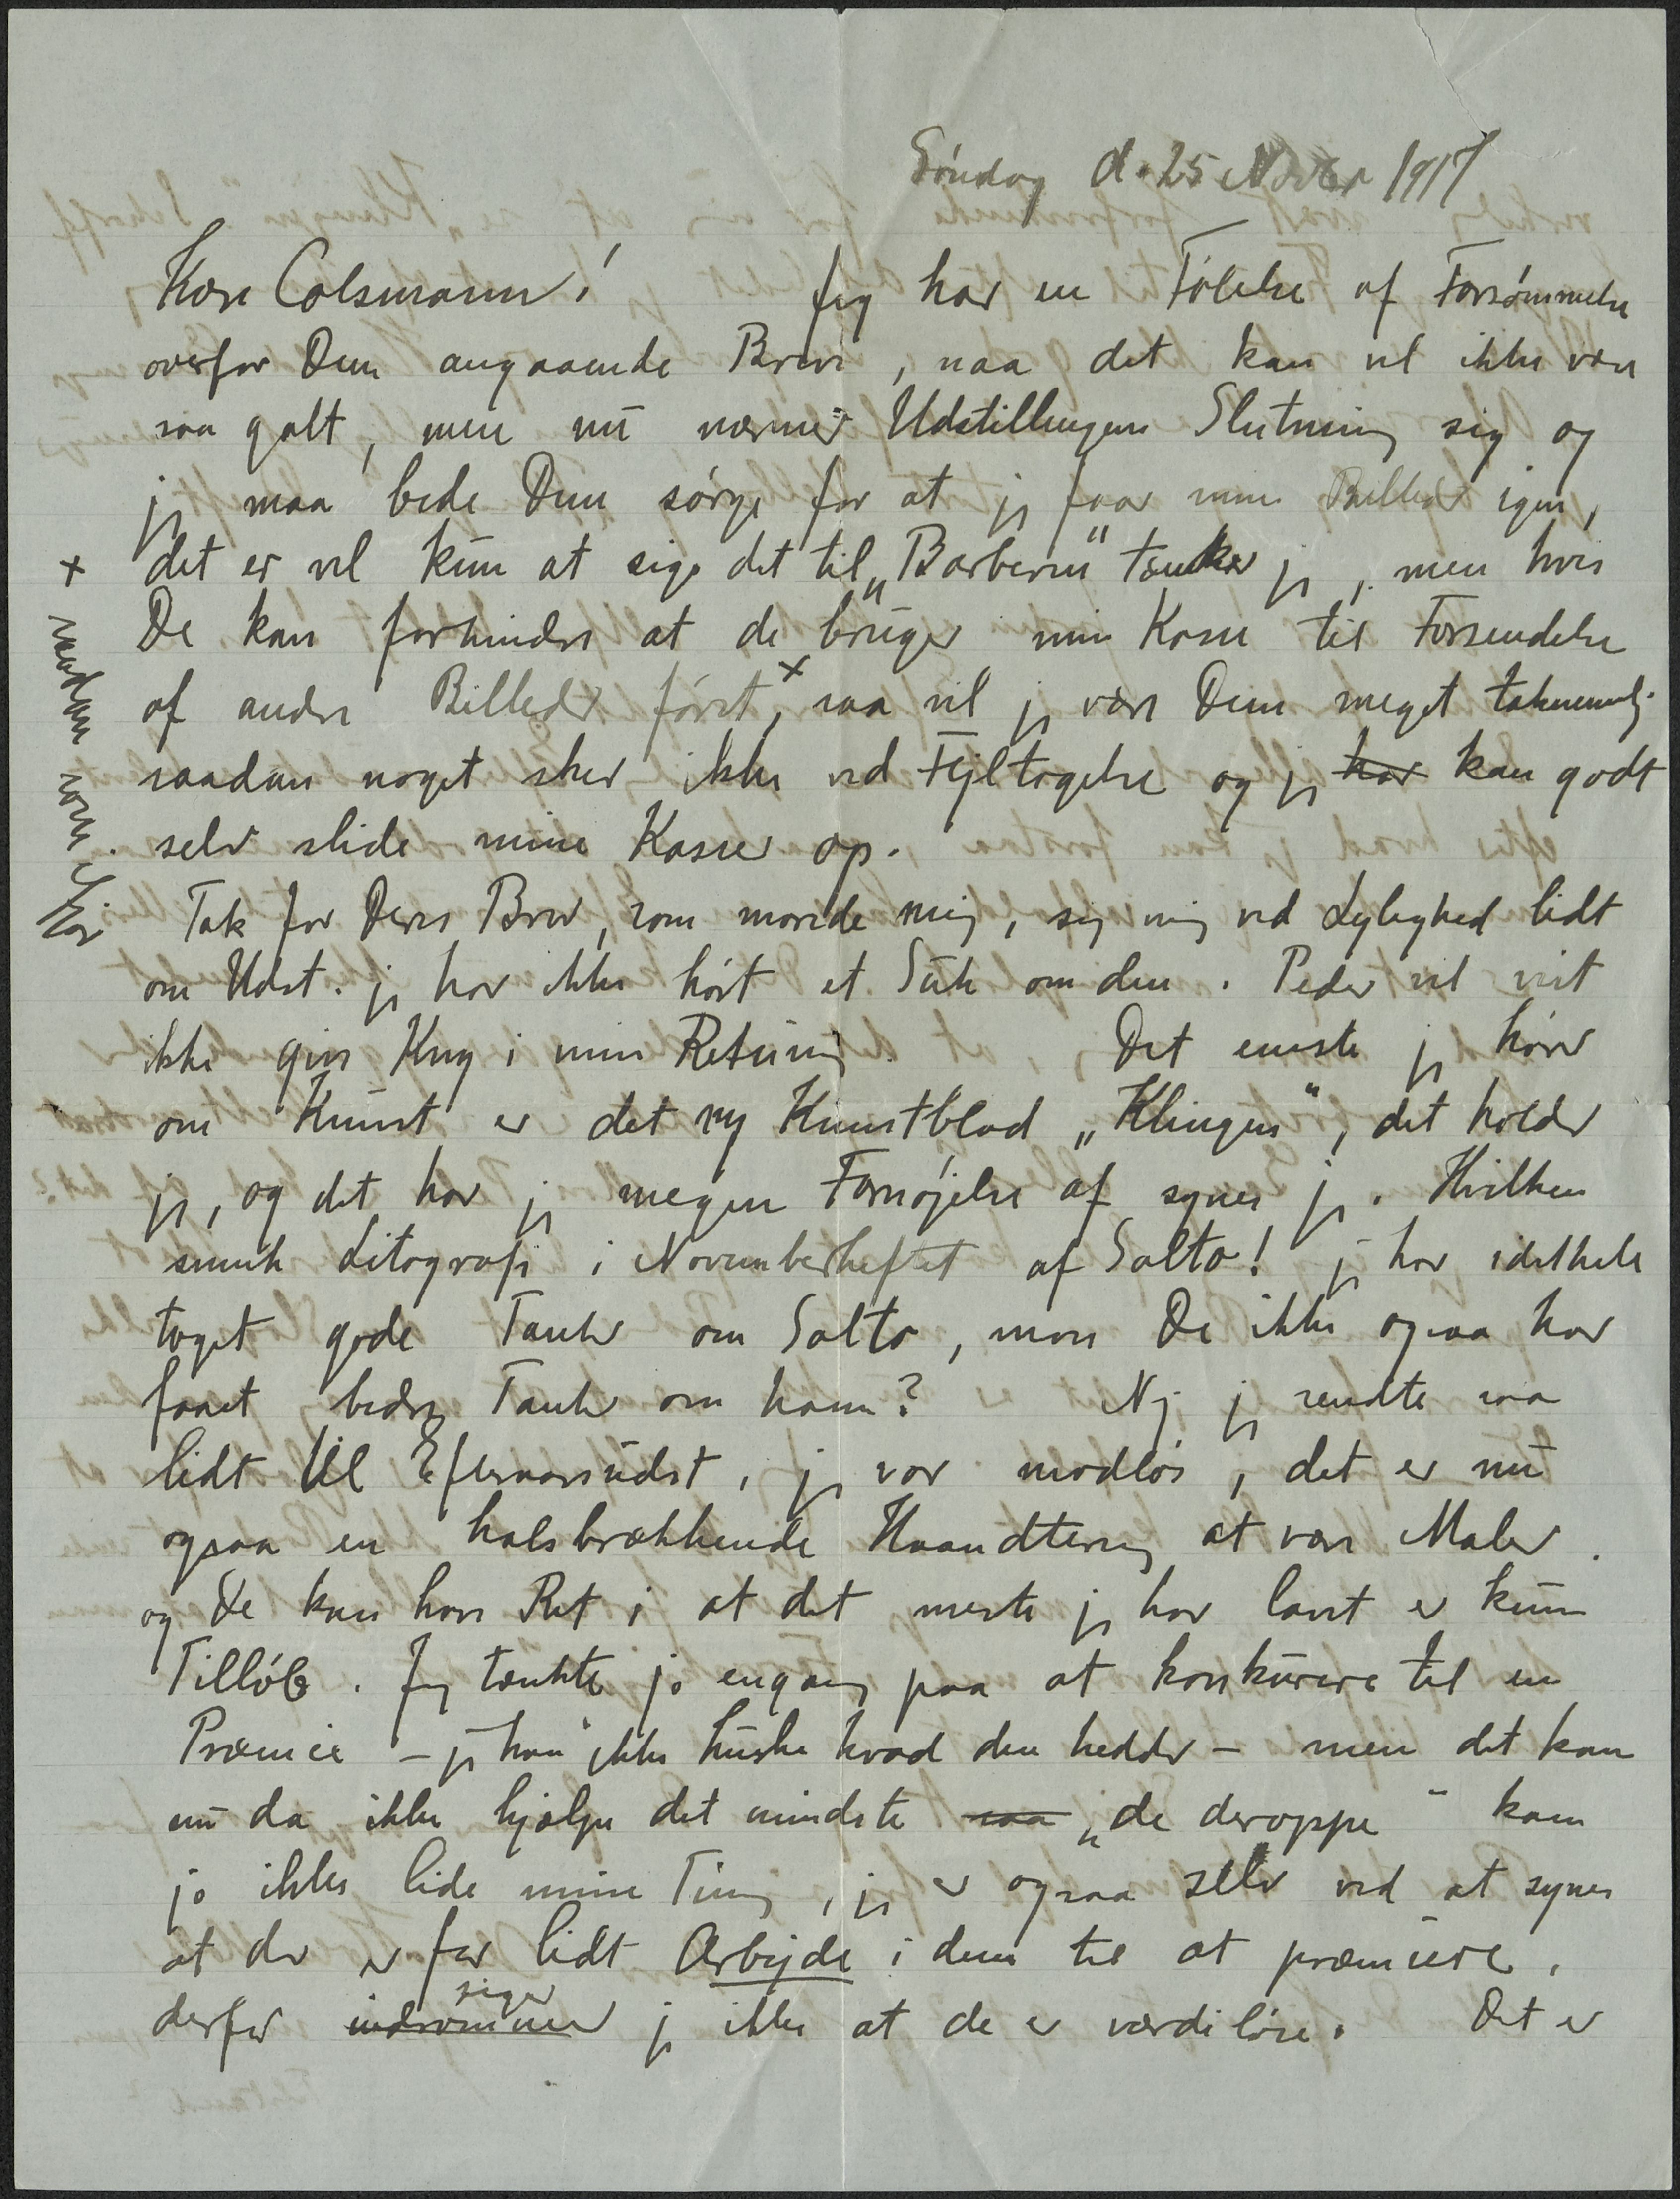 Söndag d. 25 Novbr 1917
Kære Colsmann! Jeg har en Fölelse af Forsömmelse
overfor Dem angaaende Breve, naa det kan vel ikke være
saa galt, men nu nærmer Udstillingens Slutning sig og
jeg maa bede Dem sörge for at jeg faar mine Billeder igen,
det er vel kun at sige det til „Barberen" tænker jeg, men hvis
De kan forhindre at de bruger min Kasse til Forsendelse
af andre Billeder först ×, saa vil jeg være Dem meget taknemlig
saadan noget sker ikke ved Fejltagelse og jeg har kan godt
selv slide mine Kasser op.
× saadan som ifjor
Tak for Deres Brev, som morede mig, sig mig ved Lejlighed lidt
om Udst. jeg har ikke hört et Suk om den. Peder vil vist
ikke give Kny i min Retning. Det eneste jeg hörer
om Kunst er det ny Kunstblad „Klingen", det holder
jeg, og det har jeg megen Fornöjelse af synes jeg. Hvilken
smuk Litografi i Novemberheftet af Salto! jeg har idethele
taget gode Tanker om Salto, mon De ikke ogsaa har
faaet bedre Tanker om ham? Nej jeg sendte saa
lidt til Efteraarsudst, jeg var modlös, det er nu
ogsaa en halsbrækkende Haandtering at være Maler.
og De kan have Ret i at det meste jeg har lavet er kun
Tillöb. Jeg tænkte jo engang paa at konkurere til en
Præmie – jeg kan ikke huske hvad den hedder – men det kan
nu da ikke hjælpe det mindste saa „de deroppe" kan
jo ikke lide mine Ting, jeg er ogsaa selv ved at synes
at der er for lidt Arbejde i dem til at præmiere,
derfor indrømmer siger jeg ikke at de er værdilöse. Det er